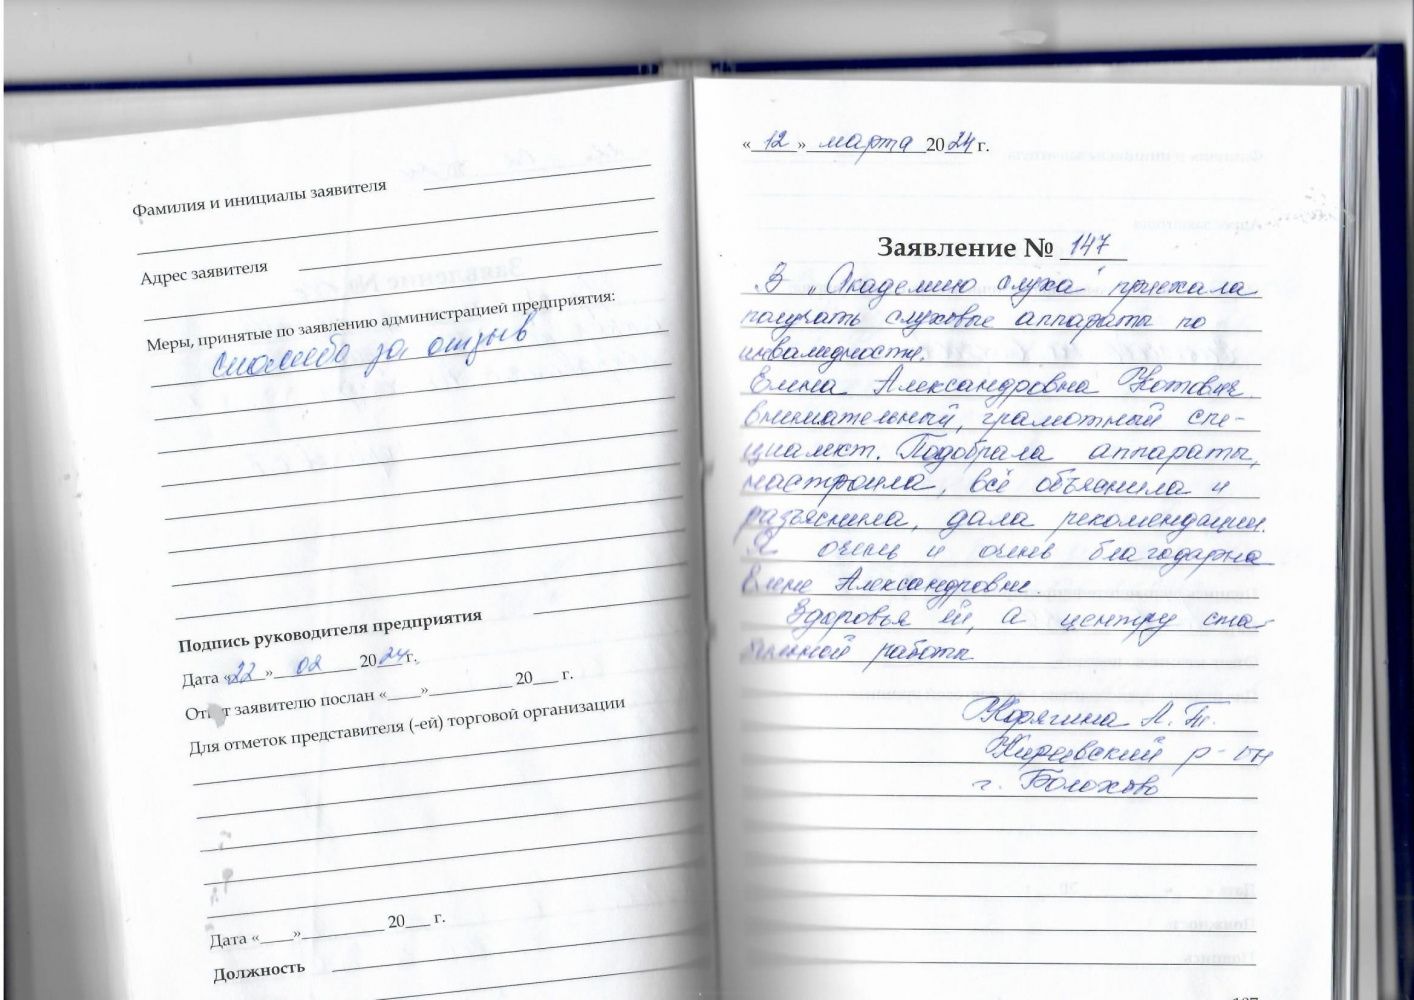 Фамилия и инициалы заявителя
Адрес заявителя
Меры, принятые по заявлению администрацией предприятия:
спасибо за отзыв
Подпись руководителя предприятия
Дата «22» 02 2024 г.
Ответ заявителю послан «___»_________ 20___ г.
Для отметок представителя (-ей) торговой организации
Дата «___»_________ 20___ г.
Должность
«12» марта 2024 г.
Заявление № 147
В „Академию слуха" приехала
получать слуховые аппараты по
инвалидности.
Елена Александровна Котович
внимательный, грамотный спе-
циалист. Подобрала аппараты,
настроила, всё объяснила и
разъяснила, дала рекомендации.
Я очень и очень благодарна
Елене Александровне.
Здоровья ей, а центру ста-
бильной работы
Корягина А.П.
Киреевский р-он
г. Болохово